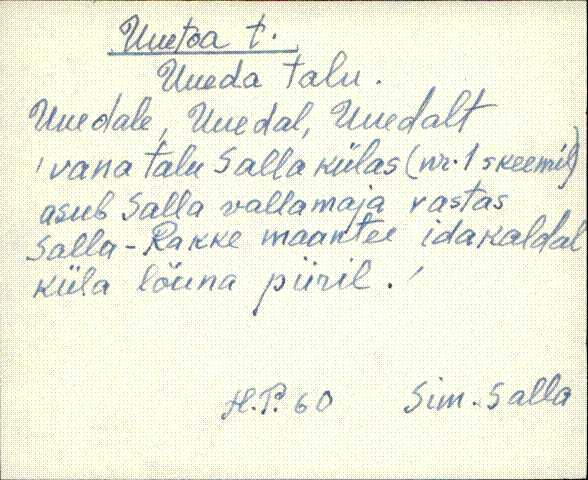 Uuetoa t.
Uueda talu.
Uuedale, Uuedal, Uuedalt
'vana talu Salla külas (nr. 1 skeemil)
asub Salla vallamaja vastas
Salla-Rakke maantee idakaldal
küla lõuna piiril.'
H.P. 60 Sim. Salla